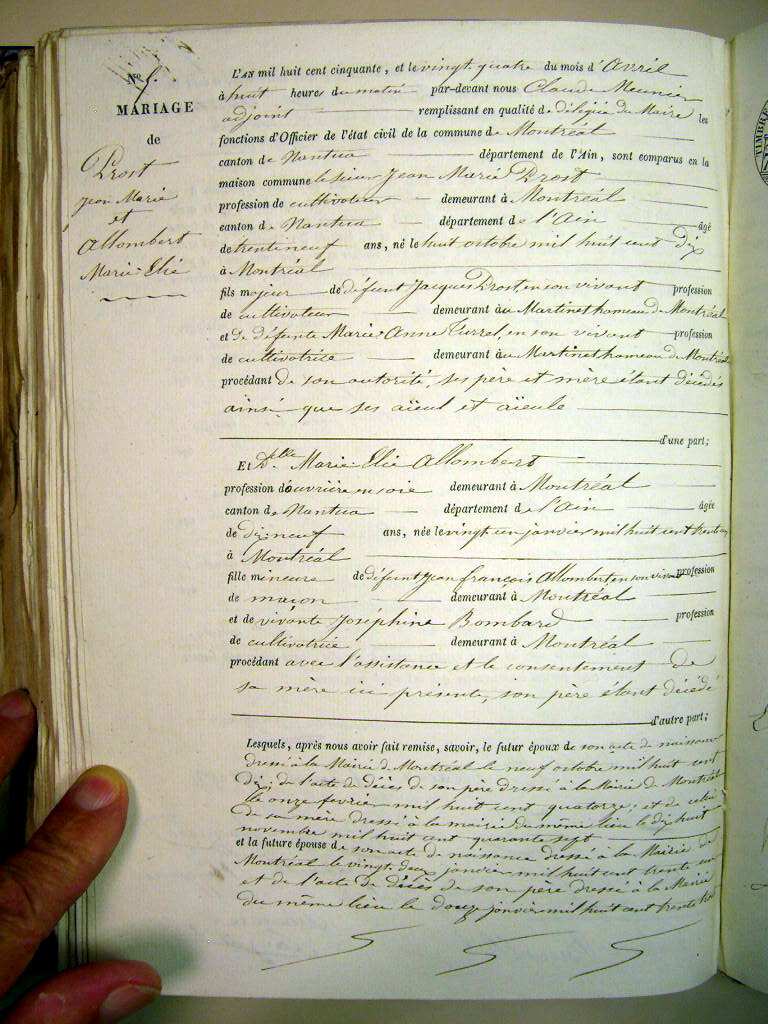 N° 5.
MARIAGE
de
Prost
Jean Marie
et
Allombert
Marie-Elié
L'AN mil huit cent cinquante, et le vingt quatre du mois d'Avril
à huit heures du matin par-devant nous Claude Meunier
adjoint remplissant en qualité de délégué du Maire les
fonctions d'Officier de l'état civil de la commune de Montréal
canton de Nantua département de l'Ain, sont comparus en la
maison commune le sieur Jean Marie Prost
profession de cultivateur demeurant à Montréal
canton de Nantua département de l'Ain âgé
de trente neuf ans, né le huit octobre mil huit cent dix
à Montréal
fils majeur de défunt Jacques Prost en son vivant profession
de cultivateur demeurant au Martinet hameau de Montréal
et de défunte Marie Anne en son vivant profession
de cultivatrice demeurant au Martinet hameau de Montréal
procédant de son autorité, ses père et mère étant décédés
ainsi que ses aïeul et aïeule
d'une part;
Et Delle Marie-Elié Allombert
profession d'ouvrière en soie demeurant à Montréal
canton de Nantua département de l'Ain âgée
de dix-neuf ans, née le vingt un janvier mil huit cent trente un
à Montréal
fille mineure de défunt Jean François Allombert en son vivant profession
de maçon demeurant à Montréal
et de vivante Joséphine Bombard profession
de cultivatrice demeurant à Montréal
procédant avec l'assistance et le consentement de
sa mère ici présente, son père étant décédé
d'autre part;
Lesquels, après nous avoir fait remise, savoir, le futur époux de son acte de naissance
dressé à la Mairie de Montréal le neuf octobre mil huit cent
dix; de l'acte de décès de son père dressé à la Mairie de Montréal
le onze fevrier mil huit cent quatorze; et de celui
de sa mère dressé à la mairie du même lieu le dix huit
novembre mil huit cent quarante sept
et la future épouse de son acte de naissance dressé à la Mairie de
Montréal le vingt deux janvier mil huit cent trente un
et de l'acte de décès de son père dressé à la Mairie
du même lieu le douze janvier mil huit cent trente trois
TIMBRE